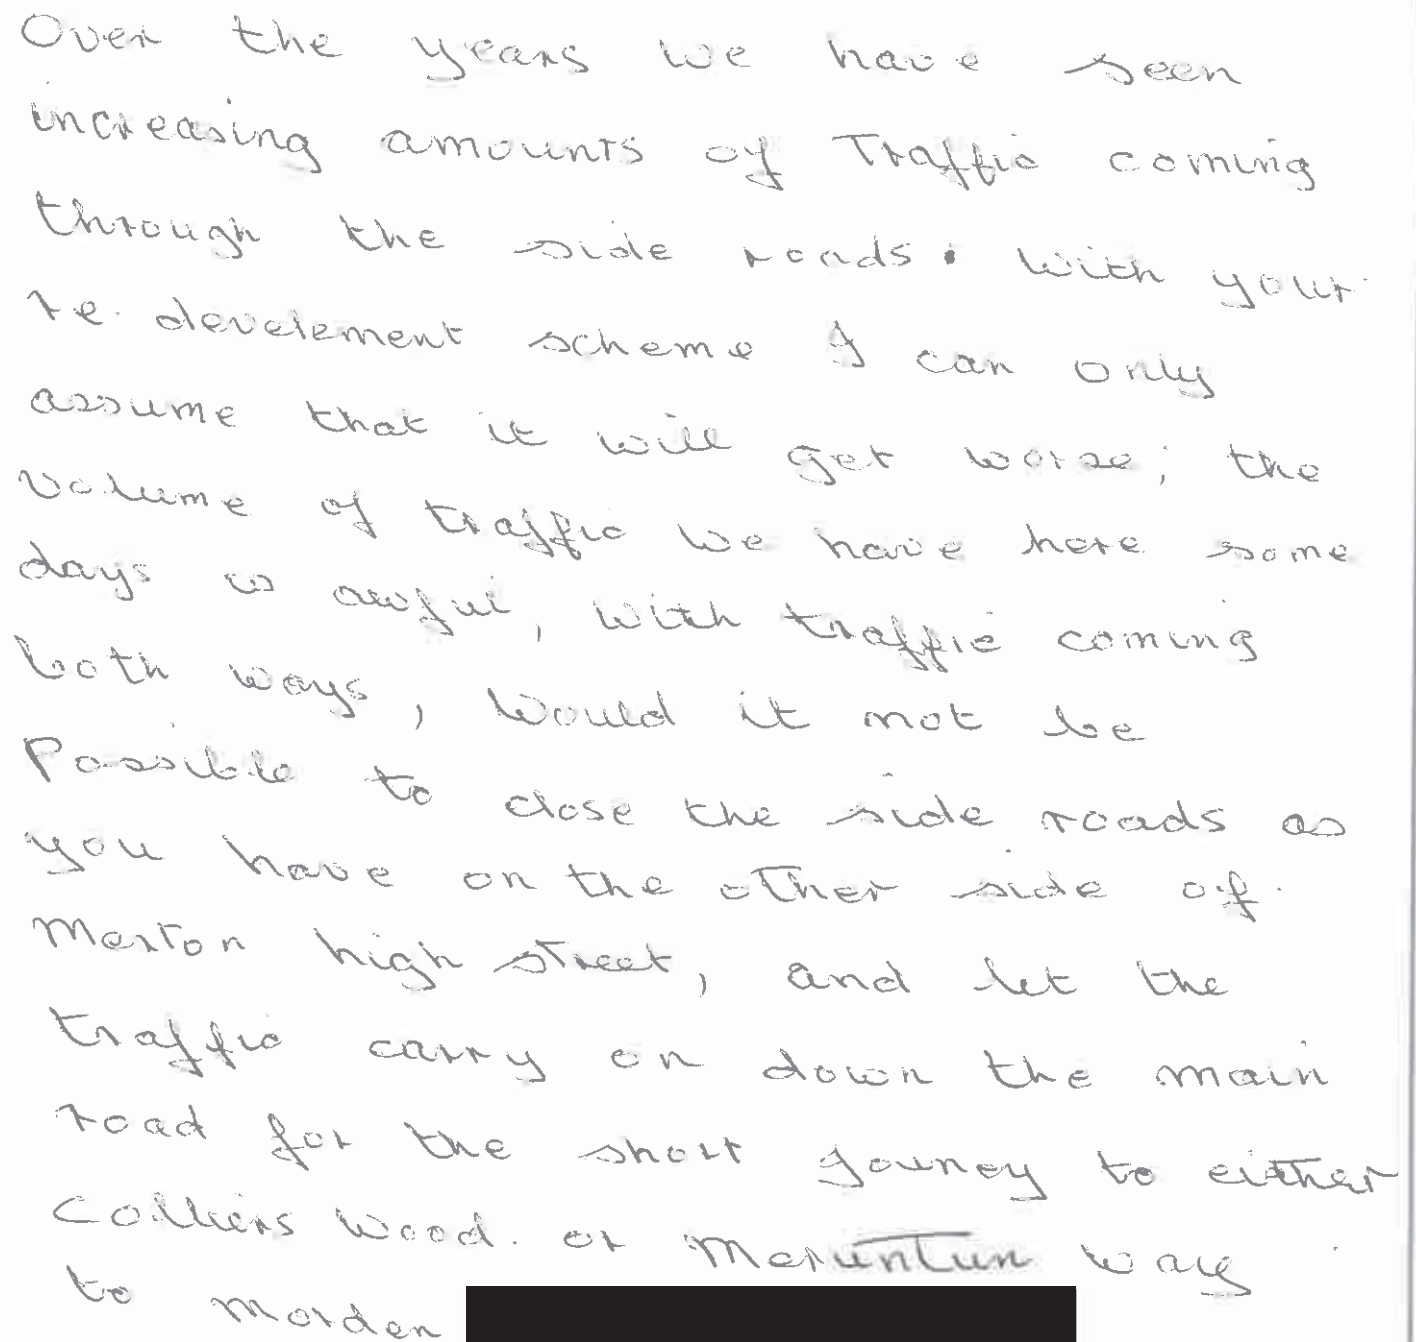 Over the years we have seen
increasing amounts of Traffic coming
through the side roads. With your
re. develement scheme I can only
assume that it will get worse; the
volume of traffic we have here some
days is awful, with traffic coming
both ways, would it not be
Possible to close the side roads as
you have on the other side of
Merton high street, and let the
traffic carry on down the main
road for the short jouney to either
Colliers Wood. or Meruntun way
to morden